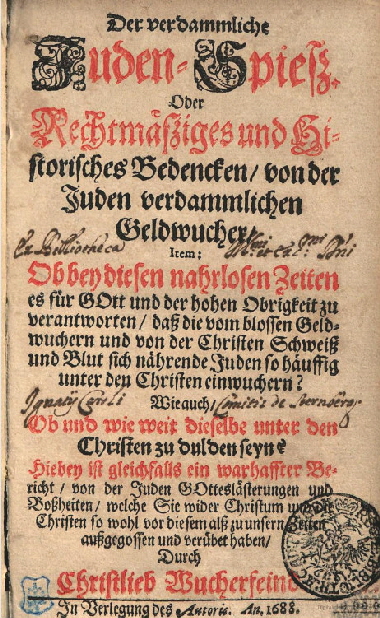 Der verdammliche
Juden-Spieß.
Oder
Rechtmäsziges und Hi-
storisches Bedencken/ von der
Juden verdammlichen
Geldwucher/
Ex Bibliotheca
Item:
Ob bey diesen nahrlosen Zeiten
es für GOtt und der hohen Obrigkeit zu
verantworten/ daß die vom blossen Geld-
wuchern und von der Christen Schweiß
und Blut sich nährende Juden so häuffig
unter den Christen einwuchern?
Wie auch/
Ignatij Caroli Comitis de Sternberg
Ob und wie weit dieselbe unter den
Christen zu dulden seyn?
Hiebey ist gleichfalls ein warhaffter Be-
richt/ von der Juden GOtteslästerungen und
Boßheiten/ welche Sie wider Christum und die
Christen so wohl vor diesem alß zu unsern Zeiten
außgegossen und verübet haben/
Durch
Christlieb Wucherfeind
In Verlegung des Autoris. An. 1688.